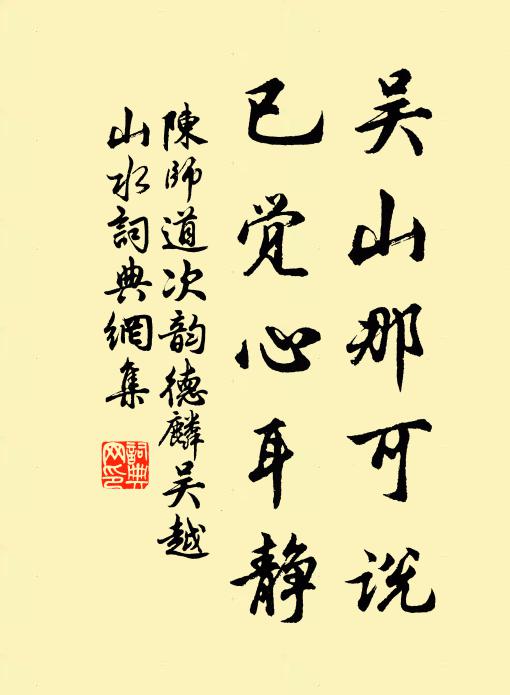 吴山那可说
已觉心耳静
陳師道次韵德麟吴越
山水詞典網集
詞典
网印